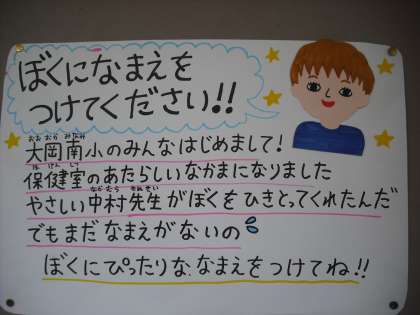 ぼくになまえを
つけてください!!
おおおか みなみ
大岡南小のみんなはじめまして!
ほけんしつ
保健室のあたらしいなかまになりました
なかむら せんせい
やさしい中村先生がぼくをひきとってくれたんだ
でもまだなまえがないの
ぼくにぴったりな、なまえをつけてね!!